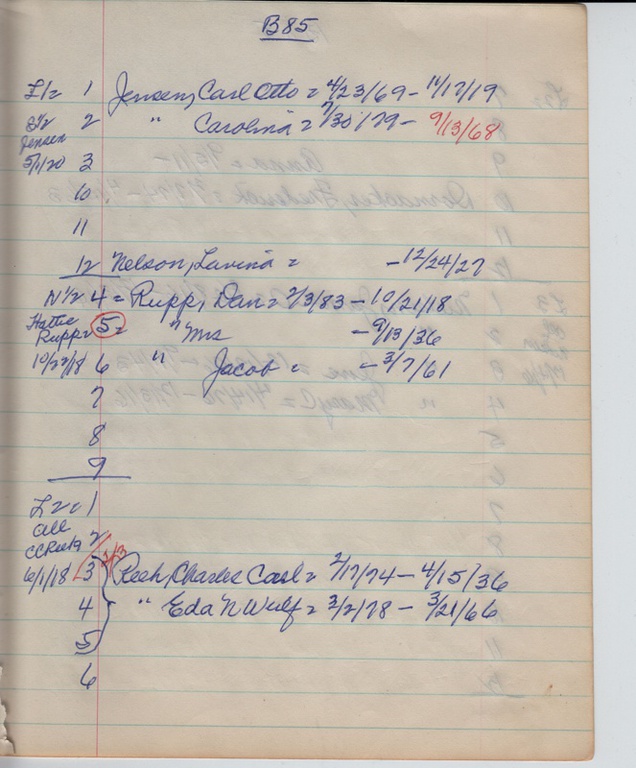 B85
L1 = 1 Jensen, Carl Otto = 4/23/69 - 11/17/19
S½ 2 " Carolina = 7/30/79 - 9/13/68
Jensen
5/1/20 3
10
11
12 Nelson, Lavina = - 12/24/27
N½ 4 = Rupp, Dan = 2/3/83 - 10/21/18
Hattie
Rupp = 5 = " Mrs - 9/13/36
10/22/18 6 " Jacob = - 3/7/61
7
8
9
L2 = 1
all
CC 2
6/1/18 3 Charles Carl = 2/17/74 - 4/15/36
4 " Eda N Wulf = 2/2/78 - 3/21/66
5
6